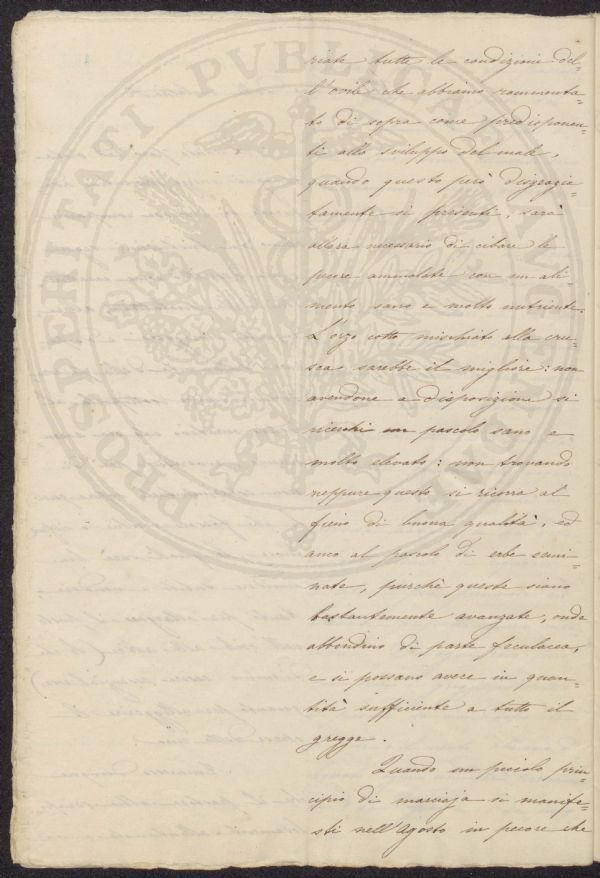 riate tutte le condizioni del-
l'ovile che abbiamo rammenta-
to di sopra come predisponen-
ti allo sviluppo del male,
quando questo però disgrazia-
tamente si presenti, sarà
allora necessario di cibare le
pecore ammalate con un ali-
mento sano e molto nutriente.
L'orzo cotto mischiato alla cru-
sca sarebbe il migliore: non
avendone a disposizione si
ricerchi un pascolo sano e
molto elevato: non trovando
neppure questo si ricorra al
fieno di buona qualità, ed
anco al pascolo di erbe semi-
nate, purchè queste siano
bastantemente avanzate, onde
abbondino di parte feculacea,
e si possano avere in quan-
tità sufficiente a tutto il
gregge.
Quando un piccolo prin-
cipio di marciaja si manife-
sti nell'Agosto in pecore che